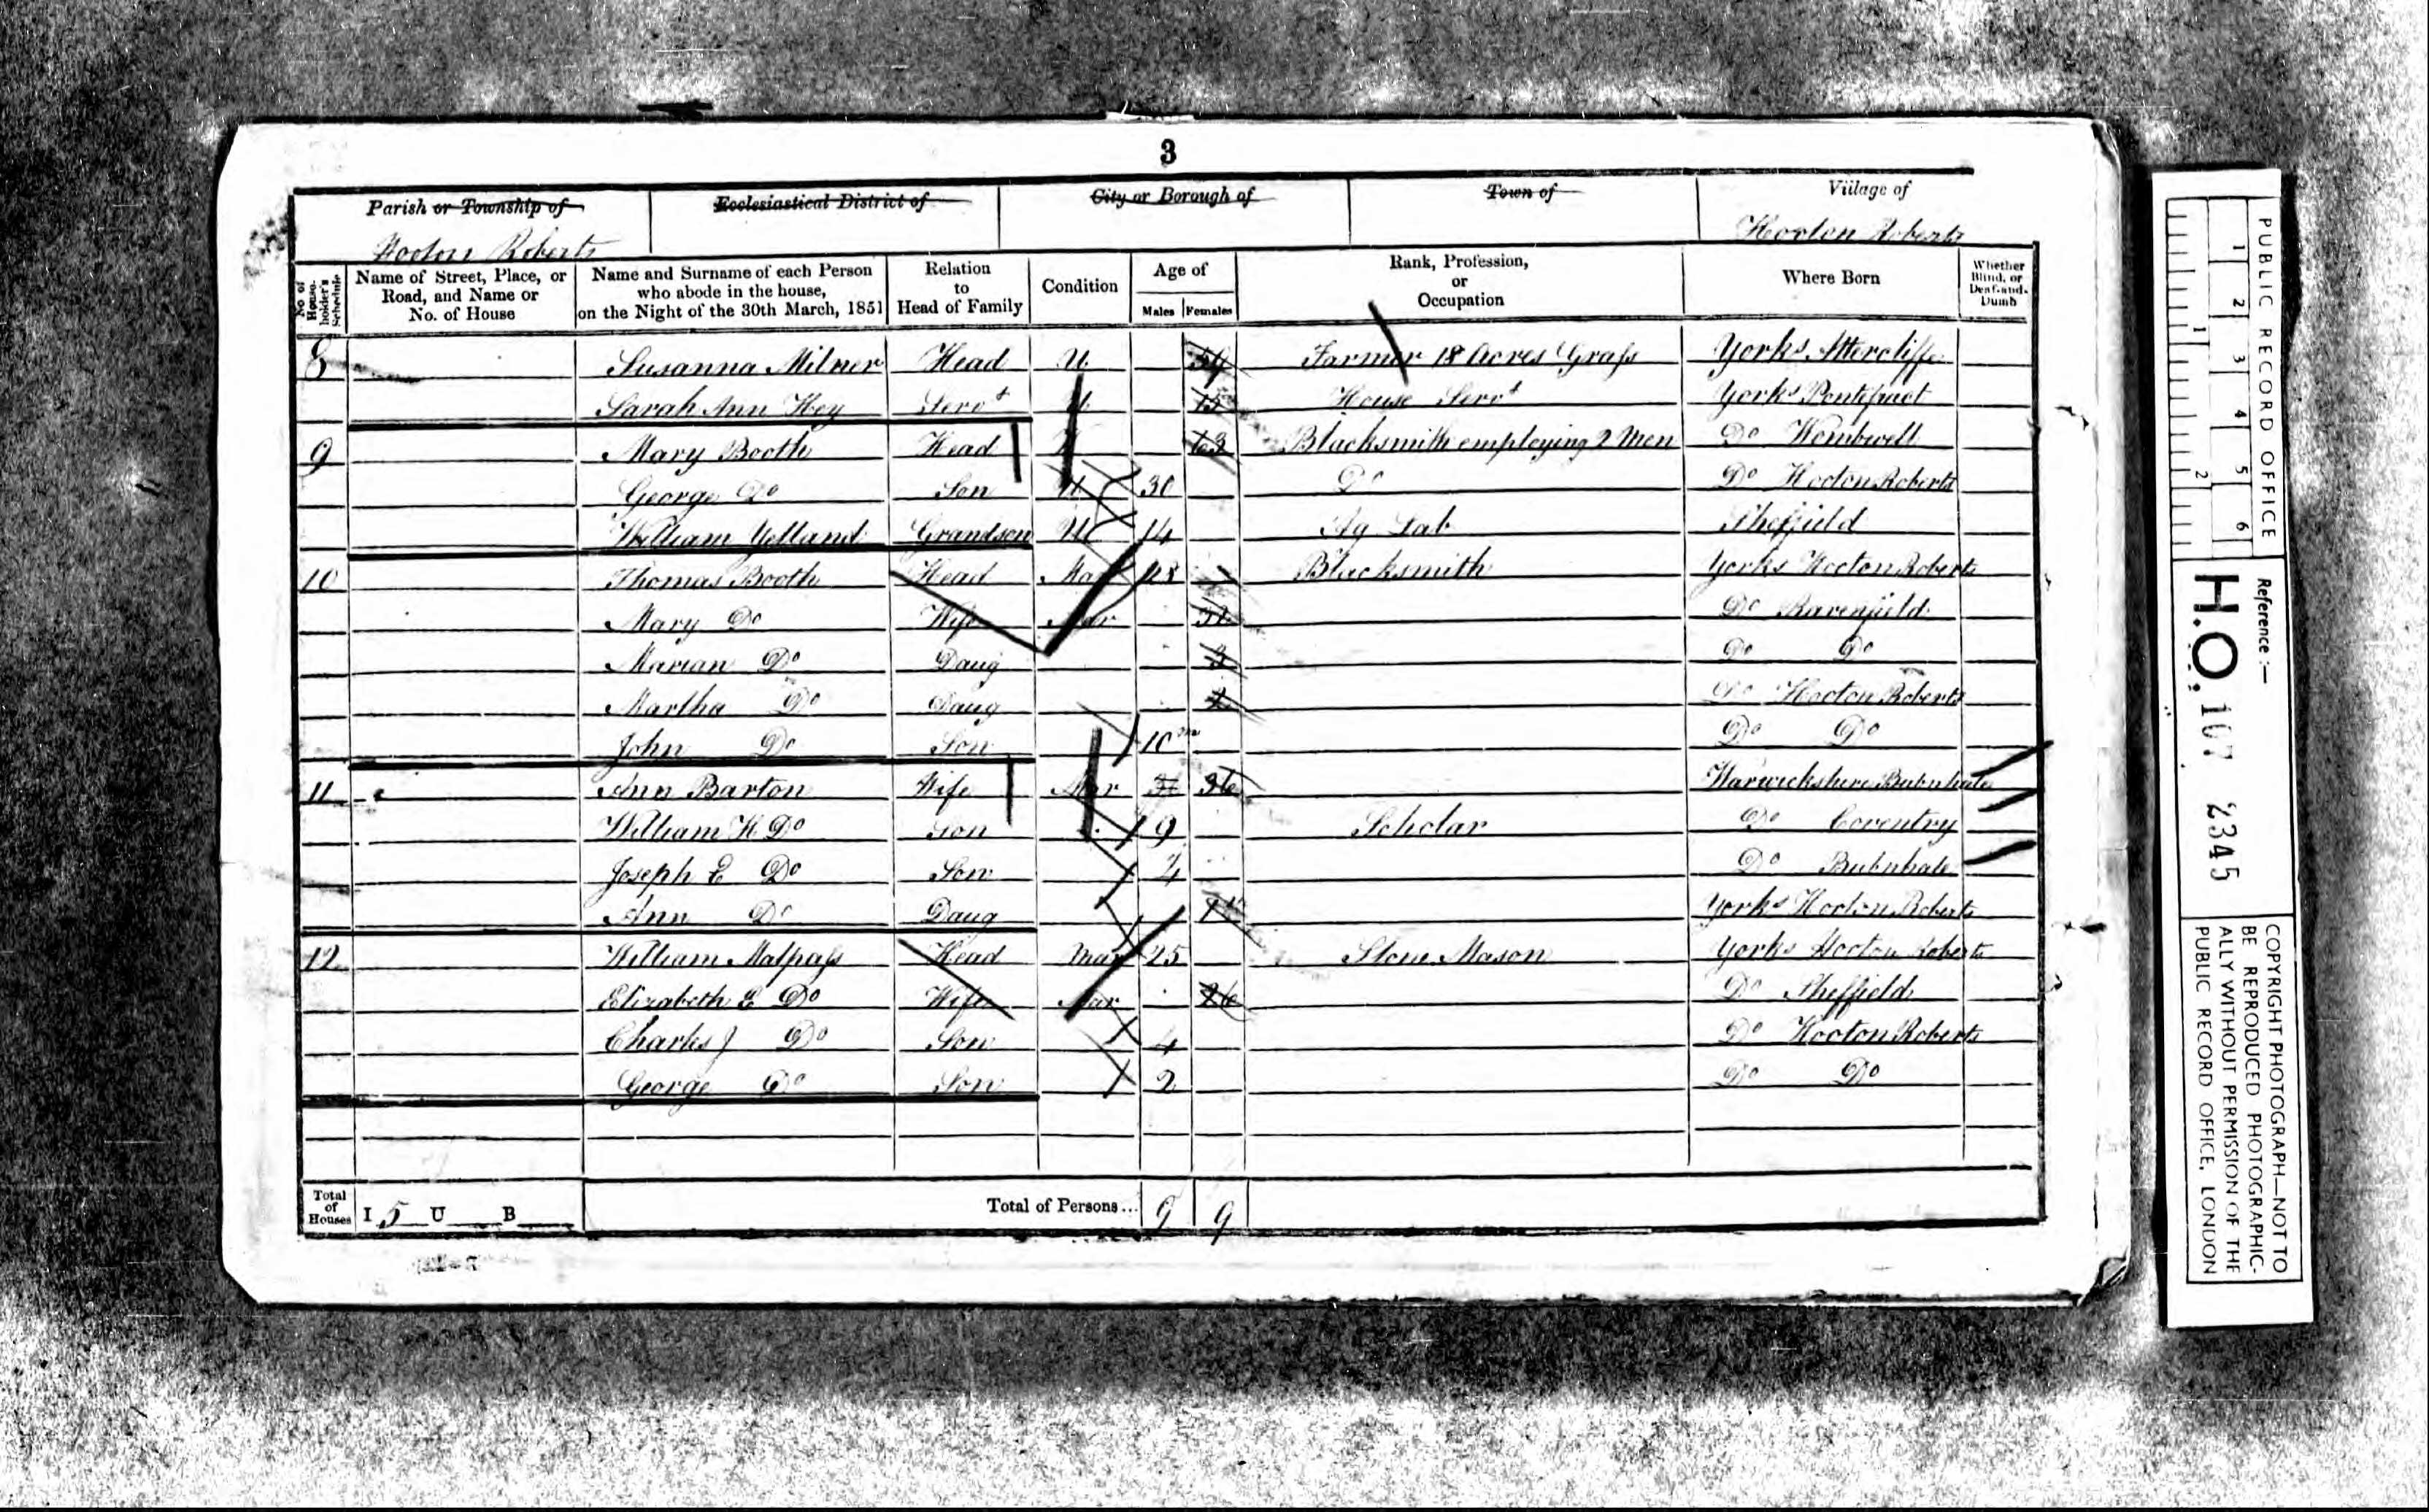 3
Parish or Township of
Ecclesiastical District of
City or Borough of
Town of
Village of
Hooton Roberts
Hooton Roberts
No of House-holder's Schedule
Name of Street, Place, or Road, and Name or No. of House
Name and Surname of each Person who abode in the house, on the Night of the 30th March, 1851
Relation to Head of Family
Condition
Age of
Males Females
Rank, Profession, or Occupation
Where Born
Whether Blind, or Deaf-and-Dumb
8 Susanna Milner Head U Farmer 18 Acres Grass Yorks Attercliffe
Sarah Ann Hey Servt U 15 House Servt Yorks Pontefract
9 Mary Booth Head 63 Blacksmith employing 2 Men Do Wombwell
George Do Son U 30 Do Do Hooton Roberts
William Yelland Grandson U 14 Ag Lab Sheffield
10 Thomas Booth Head Mar Blacksmith Yorks Hooton Roberts
Mary Do Wife Mar Do Ravenfield
Marian Do Daug 3 Do Do
Martha Do Daug 2 Do Hooton Roberts
John Do Son 10m Do Do
11 Ann Barton Wife Mar 36 Warwickshire
William H Do Son 9 Scholar Do Coventry
Joseph E Do Son Do
Ann Do Daug Yorks Hooton Roberts
12 William Malpass Head Mar 25 Stone Mason Yorks Hooton Roberts
Elizabeth E Do Wife Mar 26 Do Sheffield
Charles J Do Son 4 Do Hooton Roberts
George Do Son 2 Do Do
Total of Houses I 5 U B
Total of Persons... 9 9
PUBLIC RECORD OFFICE
1 2 3 4 5 6
1 2
Reference :-
H.O. 107 2345
COPYRIGHT PHOTOGRAPH—NOT TO
BE REPRODUCED PHOTOGRAPHIC-
ALLY WITHOUT PERMISSION OF THE
PUBLIC RECORD OFFICE, LONDON